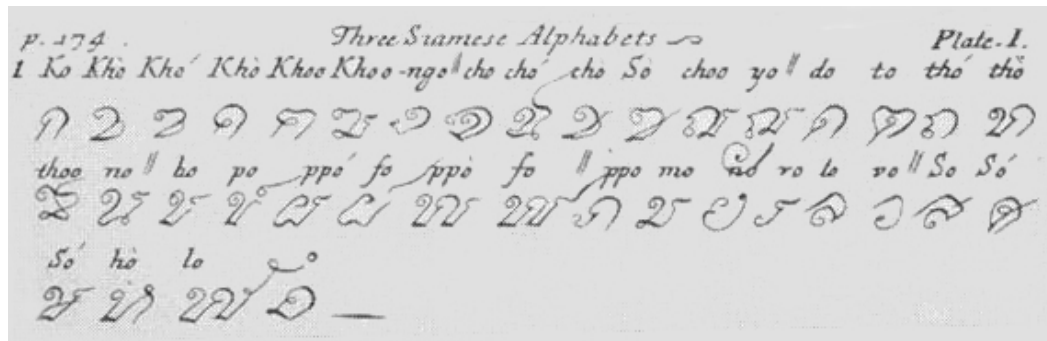 p. 174. Three Siamese Alphabets Plate. I.
1 Ko Khò Khó Khò Khoo Khoo-ngo || cho chó chò Sò choo yo || do to thó thò
ก ข ฃ ค ฅ ฆ ง จ ฉ ช ซ ฌ ญ ด ต ถ ท
thoo no || bo po ppó fo ppò fo || ppo mo yo ro lo vo || So Só
ธ น บ ป ผ ฝ พ ฟ ภ ม ย ร ล ว ส ศ
Só hò lo
ษ ห ฬ อ